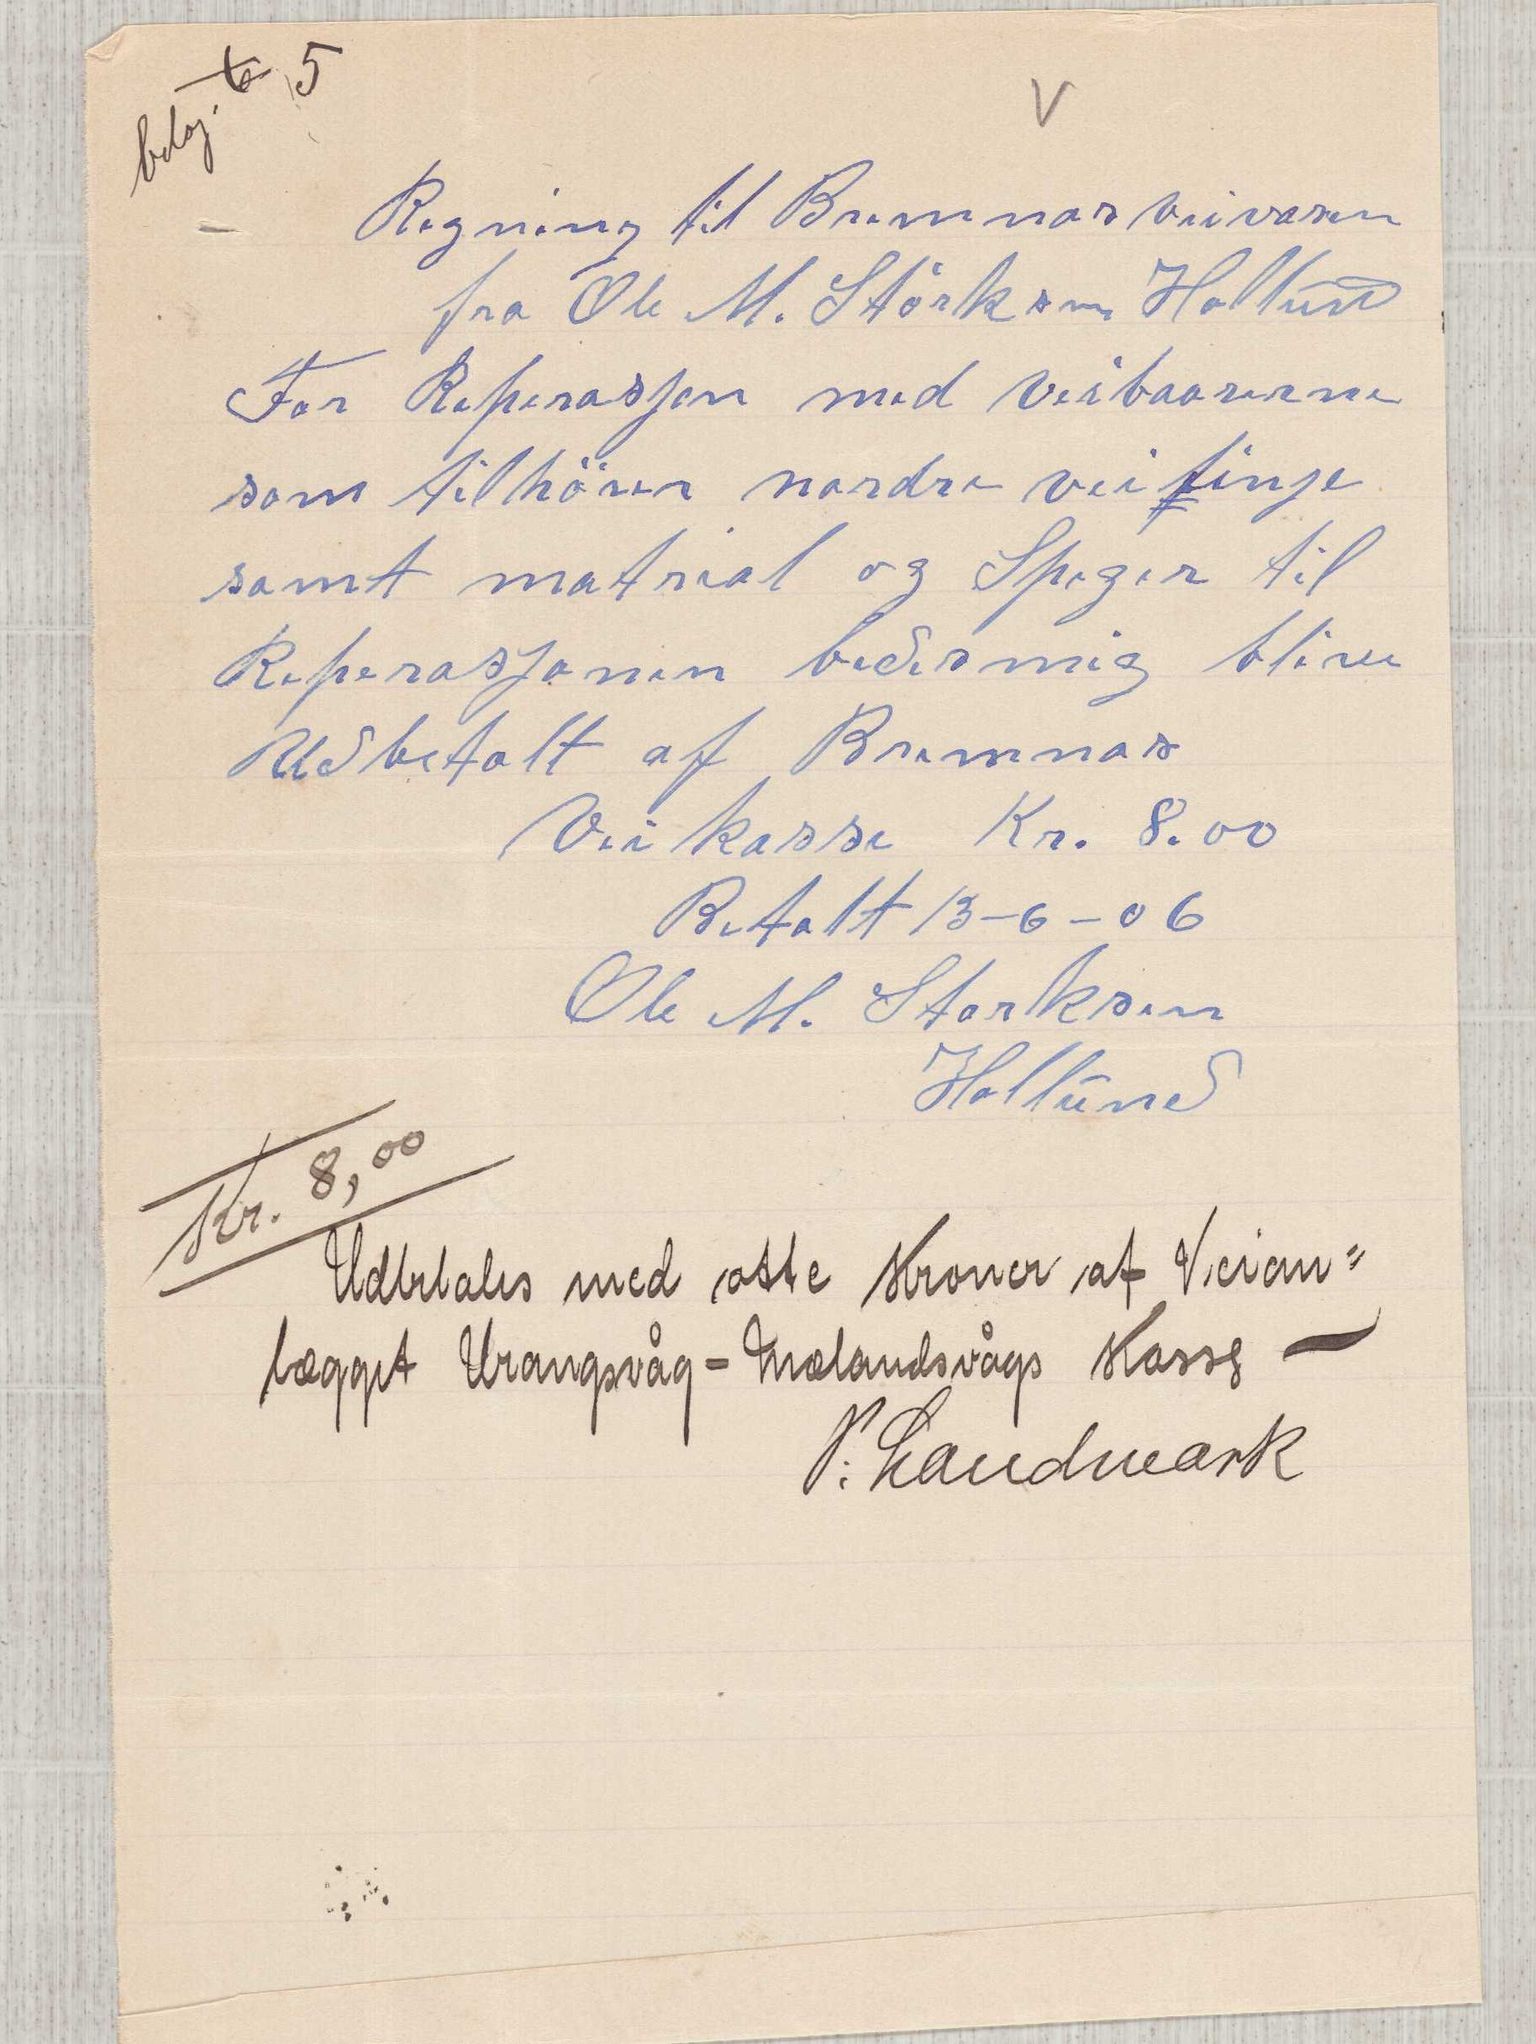 belag. 6 5
V
Regning til Bremnæs veivæsen
fra Ole M. Störksen Hollund
For Reperasjon med Veibaarerne
som tilhörer nordre vei linje
samt matrial og Speger til
Reperasjonen bedes mig blive
Udbetalt af Bremnæs
Vei kasse Kr. 8.00
Betalt 13-6-06
Ole M. Storksen
Hollund
Kr. 8,00
Udbetales med otte Kroner af Veian=
lægget Urangsvåg-Mælandsvågs Kasse —
P. Landmark